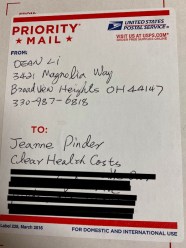 PRIORITY®
★ MAIL ★
UNITED STATES
POSTAL SERVICE®
VISIT US AT USPS.COM®
FROM:
DEAN Li
3421 Magnolia Way
Broadview Heights OH 44147
330-987-6818
TO:
Jeanne Pinder
Clear Health Costs
Label 228, March 2016
FOR DOMESTIC AND INTERNATIONAL USE